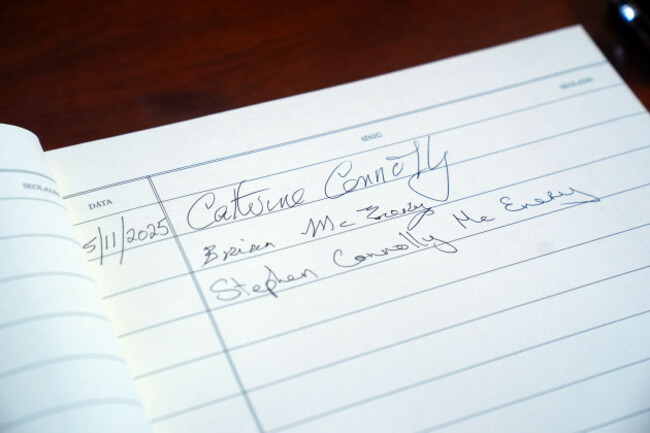 SEOLADH
DÁTA SÍNIÚ SEOLADH
5/11/2025 Catherine Connolly
Brian Mc Enery
Stephen Connolly Mc Enery